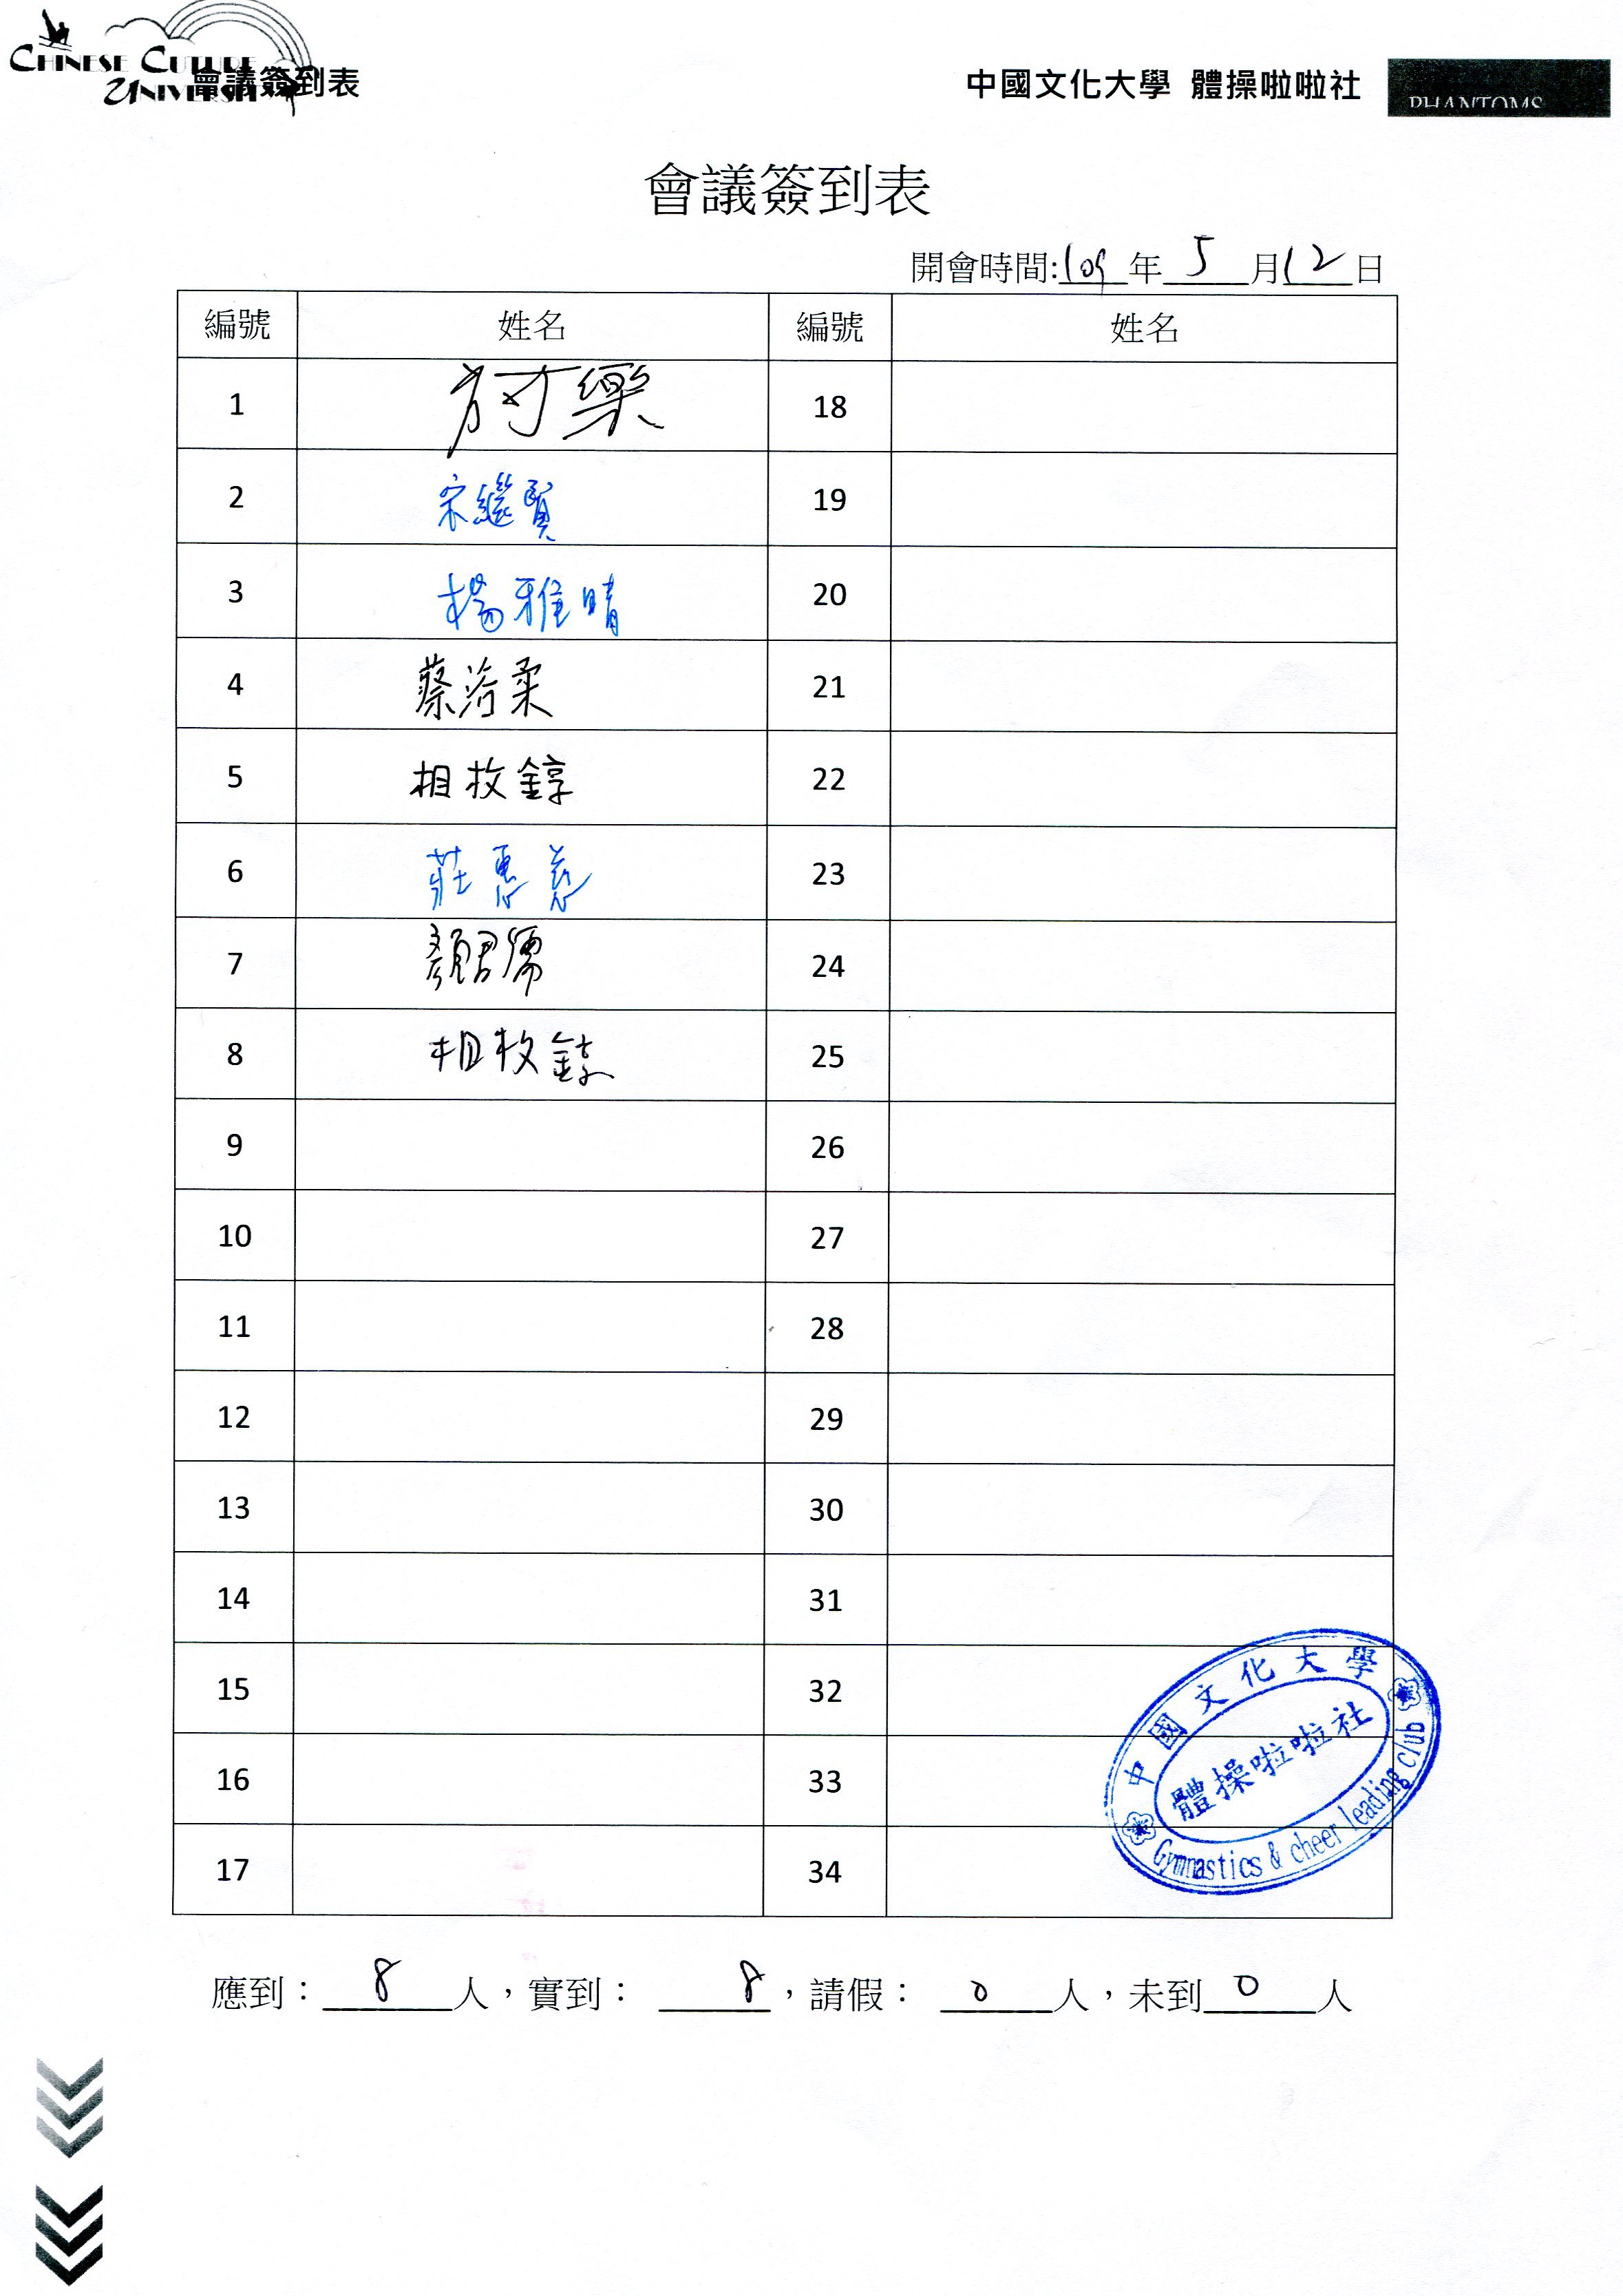 CHINESE CULTURE
UNIVERSITY
會議簽到表
中國文化大學 體操啦啦社
PHANTOMS
會議簽到表
開會時間:109年5月12日
編號 姓名 編號 姓名
1 18
2 宋繼賢 19
3 楊雅晴 20
4 蔡洛柔 21
5 相枚錞 22
6 莊惠慈 23
7 顏君儒 24
8 相枚錞 25
9 26
10 27
11 28
12 29
13 30
14 31
15 32
16 33
17 34
中國文化大學
體操啦啦社
Gymnastics & cheer leading club
應到：8人，實到：8，請假：0人，未到0人